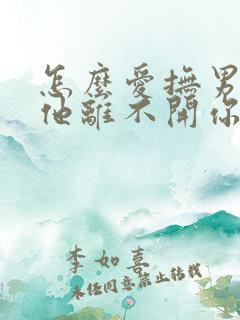 怎麼愛撫男
他離不開你
李如喜
未任同意禁止转载